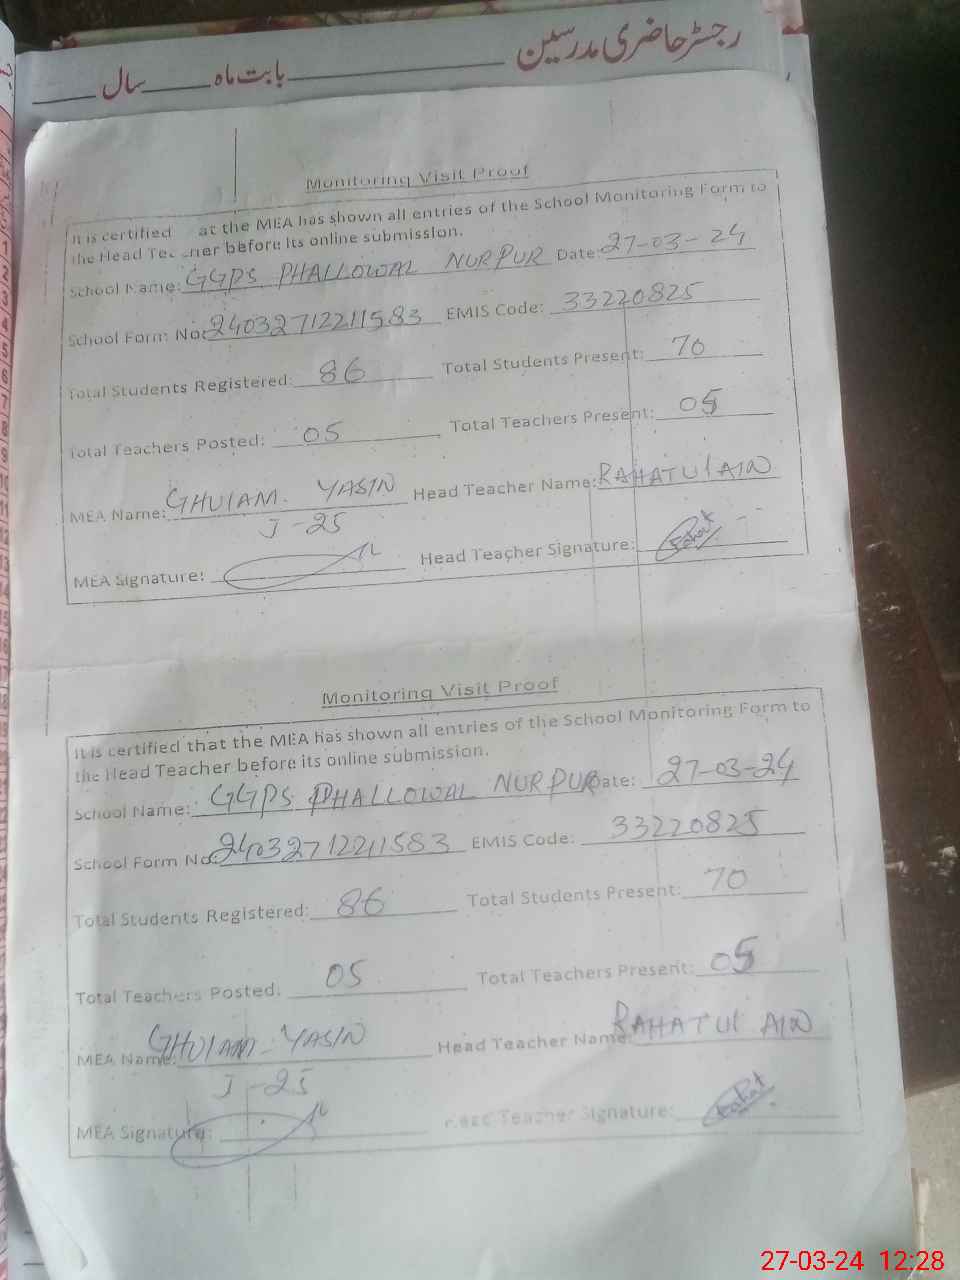 رجسٹر حاضری مدرسین ______ بابت ماہ ______ سال ______
Monitoring Visit Proof
It is certified at the MEA has shown all entries of the School Monitoring Form to
the Head Teacher before its online submission.
School Name: GGPS PHALLOWAL NURPUR Date: 27-03-24
School Form No: 24032712211583 EMIS Code: 33220825
Total Students Registered: 86 Total Students Present: 70
Total Teachers Posted: 05 Total Teachers Present: 05
MEA Name: GHULAM YASIN Head Teacher Name: RAHATUl AIN
J-25
MEA Signature: Head Teacher Signature: Rahat
Monitoring Visit Proof
It is certified that the MEA has shown all entries of the School Monitoring Form to
the Head Teacher before its online submission.
School Name: GGPS PHALLOWAL NURPUR Date: 27-03-24
School Form No: 24032712211583 EMIS Code: 33220825
Total Students Registered: 86 Total Students Present: 70
Total Teachers Posted: 05 Total Teachers Present: 05
MEA Name: GHULAM YASIN Head Teacher Name: RAHATUl AIN
J-25
MEA Signature: Head Teacher Signature: Rahat
27-03-24 12:28